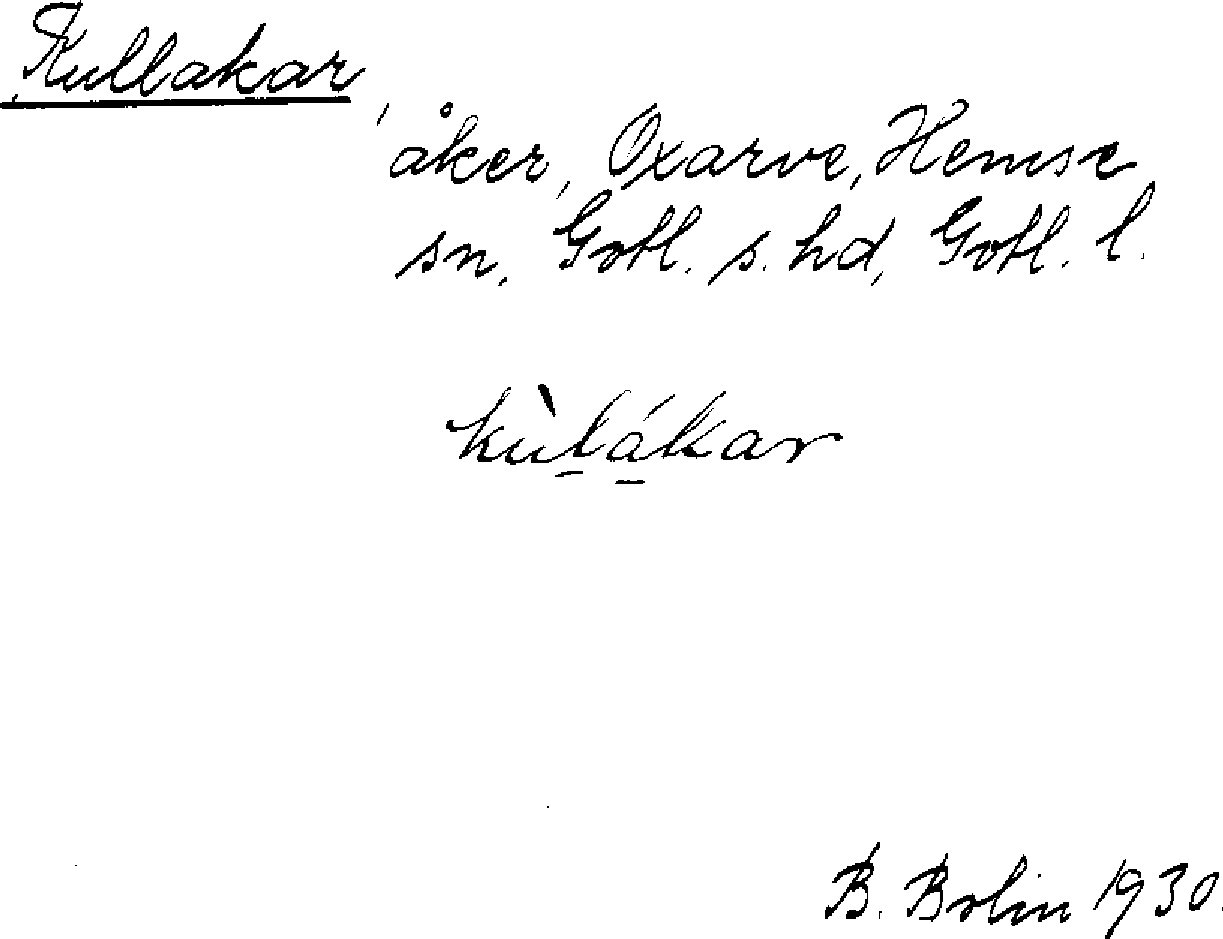 Kullakar,
åker, Oxarve, Hemse
sn, Gotl. s. hd, Gotl. l.
kùl̠á̠kar
B. Bolin 1930.